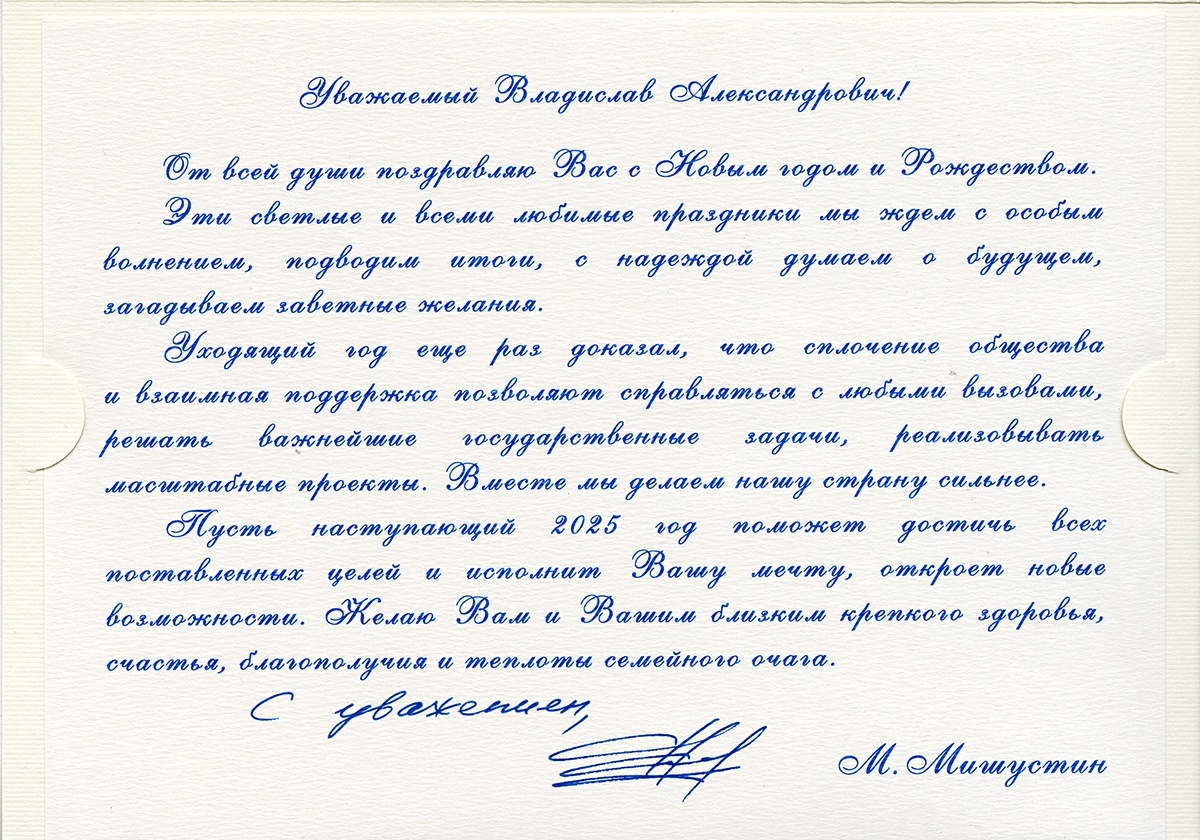 Уважаемый Владислав Александрович!
От всей души поздравляю Вас с Новым годом и Рождеством.
Эти светлые и всеми любимые праздники мы ждем с особым
волнением, подводим итоги, с надеждой думаем о будущем,
загадываем заветные желания.
Уходящий год еще раз доказал, что сплочение общества
и взаимная поддержка позволяют справляться с любыми вызовами,
решать важнейшие государственные задачи, реализовывать
масштабные проекты. Вместе мы делаем нашу страну сильнее.
Пусть наступающий 2025 год поможет достичь всех
поставленных целей и исполнит Вашу мечту, откроет новые
возможности. Желаю Вам и Вашим близким крепкого здоровья,
счастья, благополучия и теплоты семейного очага.
С уважением,
М. Мишустин